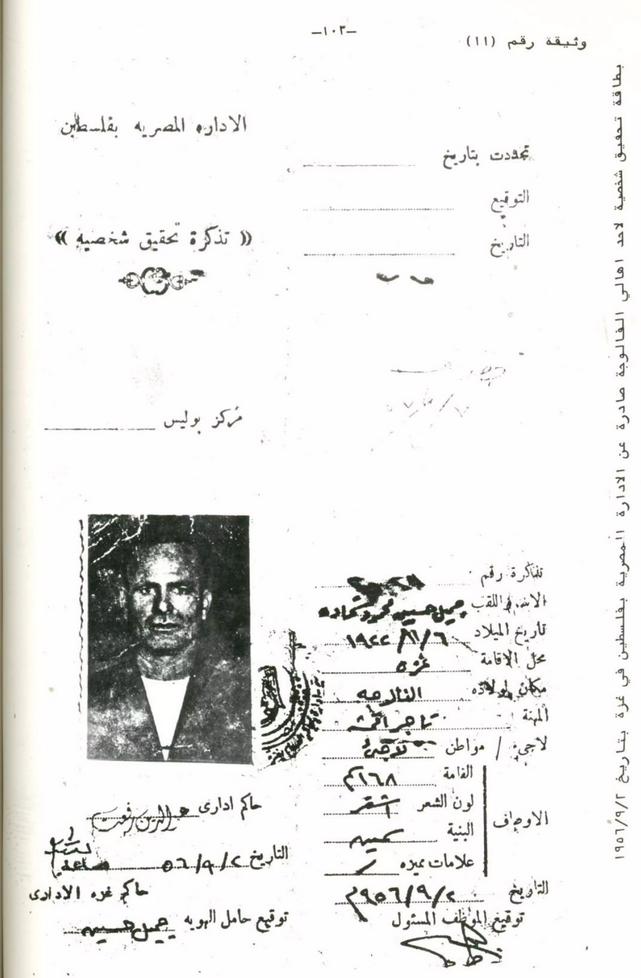 وثيقة رقم (١١)
–١٠٣–
بطاقة تحقيق شخصية لاحد اهالي الفالوجة صادرة عن الادارة المصرية بفلسطين في غزة بتاريخ ١٩٥٦/٩/٢
الاداره المصريه بفلسطين
« تذكرة تحقيق شخصيه »
مركز بوليس
تجددت بتاريخ
التوقيع
التاريخ
تذكرة رقم
الاسم واللقب جميل حسين محمود شحاده
تاريخ الميلاد ٦/١١/١٩٢٢
محل الاقامة غزه
مكان الولاده الفالوجه
المهنة تاجر
لاجئ / مواطن لاجئ
الاوصاف
القامة ١٦٨
لون الشعر اشقر
البنية
علامات مميزه /
التاريخ ٢/٩/١٩٥٦م
توقيع الموظف المسئول
حاكم ادارى
التاريخ ٢/٩/٥٦
حاكم غزه الادارى
توقيع حامل الهويه جميل حسين